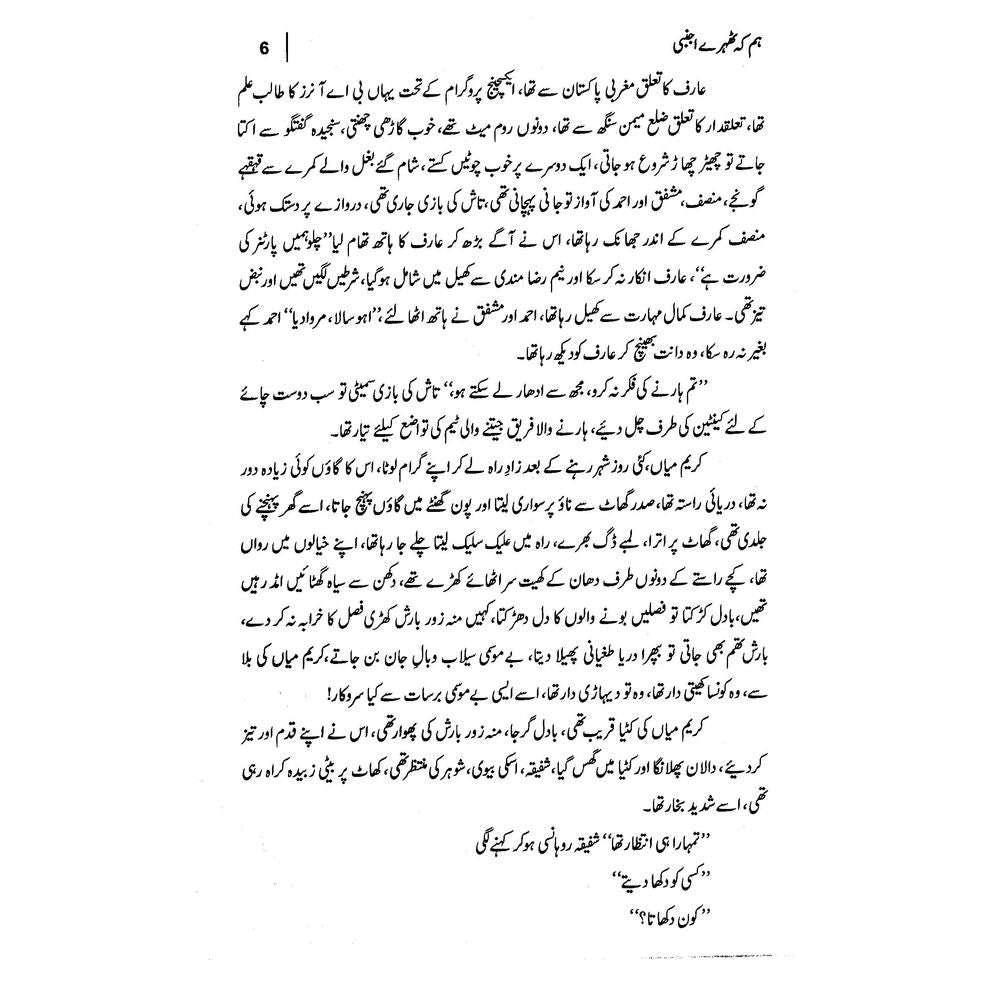 ہم کہ ٹھہرے اجنبی 6
عارف کا تعلق مغربی پاکستان سے تھا، ایکسچینج پروگرام کے تحت یہاں بی اے آنرز کا طالب علم
تھا، تعلقدار کا تعلق ضلع میمن سنگھ سے تھا، دونوں روم میٹ تھے، خوب گاڑھی چھنتی، سنجیدہ گفتگو سے اکتا
جاتے تو چھیڑ چھاڑ شروع ہو جاتی، ایک دوسرے پر خوب چوٹیں کستے، شام گئے بغل والے کمرے سے قہقہے
گونجے، منصف، مشفق اور احمد کی آواز تو جانی پہچانی تھی، تاش کی بازی جاری تھی، دروازے پر دستک ہوئی،
منصف کمرے کے اندر جھانک رہا تھا، اس نے آگے بڑھ کر عارف کا ہاتھ تھام لیا ”چلو ہمیں پارٹنر کی
ضرورت ہے“، عارف انکار نہ کر سکا اور نیم رضا مندی سے کھیل میں شامل ہو گیا، شرطیں لگیں تھیں اور نبض
تیز تھی۔ عارف کمال مہارت سے کھیل رہا تھا، احمد اور مشفق نے ہاتھ اٹھا لئے، ”اہو سالا، مروا دیا“ احمد کہے
بغیر نہ رہ سکا، وہ دانت بھینچ کر عارف کو دیکھ رہا تھا۔
”تم ہارنے کی فکر نہ کرو، مجھ سے ادھار لے سکتے ہو،“ تاش کی بازی سمیٹی تو سب دوست چائے
کے لئے کینٹین کی طرف چل دیئے، ہارنے والا فریق جیتنے والی ٹیم کی تواضع کیلئے تیار تھا۔
کریم میاں، کئی روز شہر رہنے کے بعد زادِ راہ لے کر اپنے گرام لوٹا، اس کا گاؤں کوئی زیادہ دور
نہ تھا، دریائی راستہ تھا، صدر گھاٹ سے ناؤ پر سواری لیتا اور پون گھنٹے میں گاؤں پہنچ جاتا، اسے گھر پہنچنے کی
جلدی تھی، گھاٹ پر اترا، لمبے ڈگ بھرے، راہ میں علیک سلیک لیتا چلے جا رہا تھا، اپنے خیالوں میں رواں
تھا، کچے راستے کے دونوں طرف دھان کے کھیت سر اٹھائے کھڑے تھے، دکھن سے سیاہ گھٹائیں امڈ رہیں
تھیں، بادل کڑکتا تو فصلیں بونے والوں کا دل دھڑکتا، کہیں منہ زور بارش کھڑی فصل کا خرابہ نہ کر دے،
بارش تھم بھی جاتی تو بپھرا دریا طغیانی پھیلا دیتا، بے موسمی سیلاب وبالِ جان بن جاتے، کریم میاں کی بلا
سے، وہ کونسا کھیتی دار تھا، وہ تو دیہاڑی دار تھا، اسے ایسی بے موسمی برسات سے کیا سروکار!
کریم میاں کی کٹیا قریب تھی، بادل گرجا، منہ زور بارش کی پھوار تھی، اس نے اپنے قدم اور تیز
کر دیئے، دالان پھلانگا اور کٹیا میں گھس گیا، شفیقہ، اسکی بیوی، شوہر کی منتظر تھی، کھاٹ پر بیٹی زبیدہ کراہ رہی
تھی، اسے شدید بخار تھا۔
”تمہارا ہی انتظار تھا“ شفیقہ روہانسی ہو کر کہنے لگی
”کسی کو دکھا دیتے“
”کون دکھاتا؟“